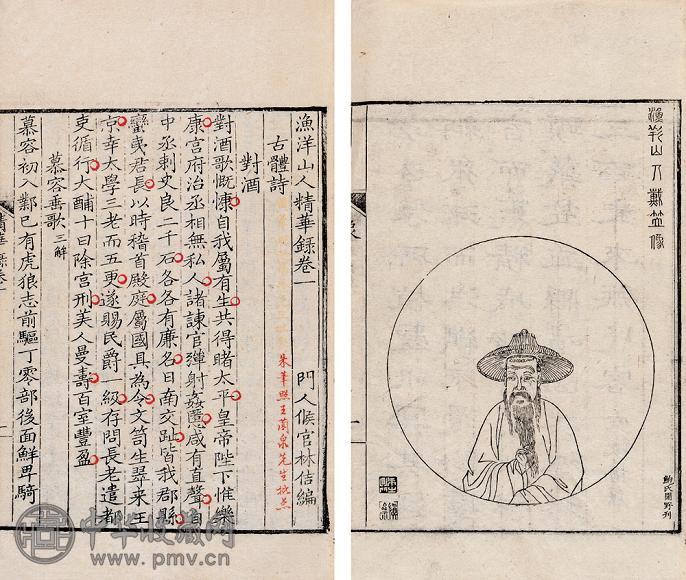 漁洋山人戴笠像
漁洋山人精華錄卷一
門人候官林佶編
朱筆照王蘭泉先生批点
古體詩
對酒
對酒歌慨慷自我屬有生共得睹太平皇帝陛下惟樂
康宮府治丞相無私人諸諫官彈射姦慝咸有直聲自
中丞刺史良二千石各各有廉名日南交趾皆我郡縣
蠻夷君長以時稽首殿庭屬國具為令文笥生翠來王
京幸太學三老而五更遂賜民爵一級存問長老遣都
吏循行大酺十日除宮刑美人曼壽百室豐盈
慕容垂歌三解
慕容初入鄴已有虎狼志前驅丁零部後面鮮卑騎
精華錄卷一
中华收藏网
www.pmv.cn